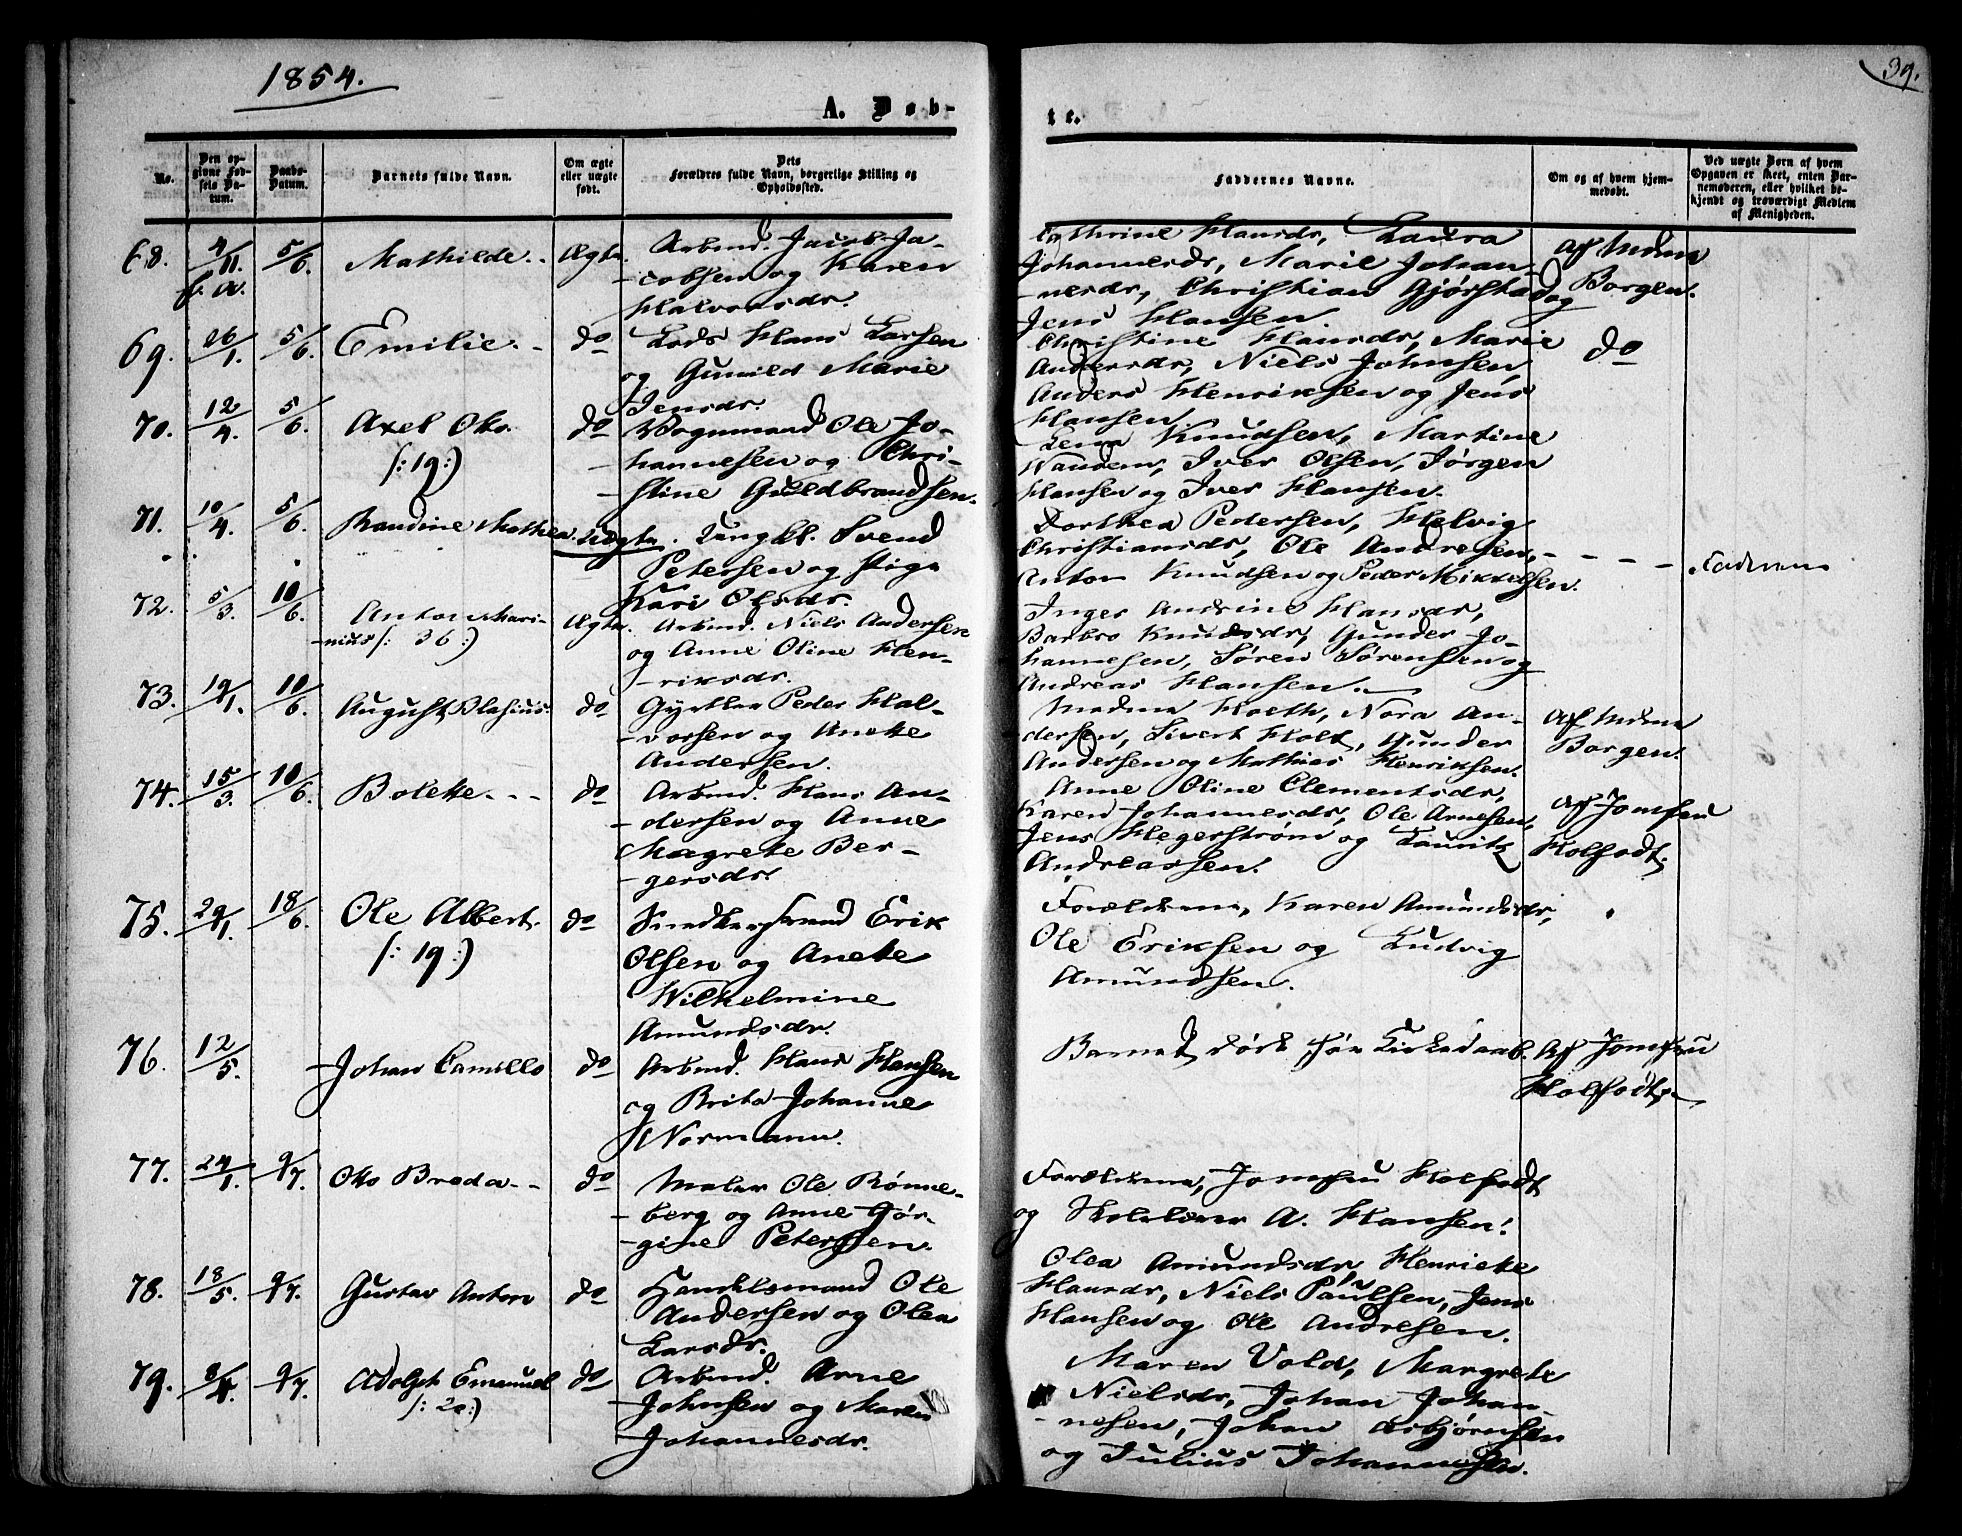 1854.
39.
A. Døb-
te.
No.
Den op-
givne Fød-
sels Da-
tum.
Daabs-
Datum.
Barnets fulde Navn.
Om ægte
eller uægte
født.
Dets
Forældres fulde Navn, borgerlige Stilling og
Opholdssted.
Faddernes Navne.
Om og af hvem hjem-
medøbt.
Ved uægte Børn af hvem
Opgaven er skeet, enten Bar-
nemoderen, eller hvilket be-
kjendt og troværdigt Medlem
af Menigheden.
68. 4/11. f. a. 5/6. Mathilde. Ægte
Arbmd. Jacob Ja-
cobsen og Karen
Halvorsdr.
Cathrine Hansdr, Laura
Johannesdr, Marie Johan-
nesdr, Christian Gjørstad og
Jens Hansen
Af Mdme
Borgen.
69. 26/1. 5/6. Emilie. do
Lods Hans Larsen
og Gunild Marie
Jensdr.
Christine Hansdr, Marie
Andersdr, Niels Johnsen,
Anders Henriksen og Jens
Hansen
do
70. 12/4. 5/6. Axel Oto. do
/: 19 :/
Vognmand Ole Jo-
hannesen og Chri-
stine Guldbrandsen.
Lena Knudsen, Martine
Iver Olsen, Jørgen
Hansen og Iver Hansen.
71. 10/4. 5/6. Randine Mathea. Uægte.
Ungkl. Svend
Petersen og Pige
Kari Olsdr.
Dorthea Pedersen, Helvig
Christiansdr, Ole Andresen,
Anton Knudsen og Peder Mikkelsen.
Faderen
72. 5/3. 10/6. Anton Mari-
nius /: 36 :/ Ægte.
Arbmd. Niels Andersen
og Anne Oline Hen-
riksdr.
Inger Andrine Hansdr,
Barbro Knudsdr, Gunder Jo-
hannesen, Søren Sørensen og
Andreas Hansen.
73. 19/1. 10/6. August Blasius. do
Gjørtler Peder Hal-
vorsen og Aneke
Andersen.
Madme Hoeth, Nora An-
dersen, Sivert Holt, Gunder
Andersen og Mathias Henriksen.
Af Mdme
Borgen.
74. 15/3. 10/6. Bolette. do
Arbmd. Hans An-
dersen og Anne
Magrete Ber-
gersdr.
Anne Oline Clementsdr,
Karen Johannesdr, Ole Arnesen,
Jens Hegerstrøm og Lauritz
Andreassen.
Af Jomfru
Holfodt.
75. 29/1. 18/6. Ole Albert. do
/: 19 :/
Snedkersvend Erik
Olsen og Aneke
Wilhelmine
Amundsdr.
Forældrene, Karen Amundsdr,
Ole Eriksen og Ludvig
Amundsen.
76. 12/5. Johan Camillo do
Arbmd. Hans Hansen
og Brita Johanne
Normann.
Barnet døde før Kirkedaab.
Af Jomfru
Holfodt.
77. 24/1. 9/7. Oto Breda do
Maler Ole Rønne-
berg og Anne Jør-
gine Petersen.
Forældrene, Jomfru Holfodt
og Skolelærer A. Hansen.
78. 18/5. 9/7. Gustav Anton do
Handelsmand Ole
Andersen og Olea
Larsdr.
Olea Amundsdr, Henrieke
Hansdr, Niels Paulsen, Jens
Hansen og Ole Andresen.
79. 8/4. 9/7. Adolph Emanuel do
/: 20 :/
Arbmd. Arne
Johnsen og Maren
Johannesdr.
Maren Vold, Margrete
Nielsdr, Johan Johan-
nesen, Johan Asbjørnsen
og Julius Johannesen.